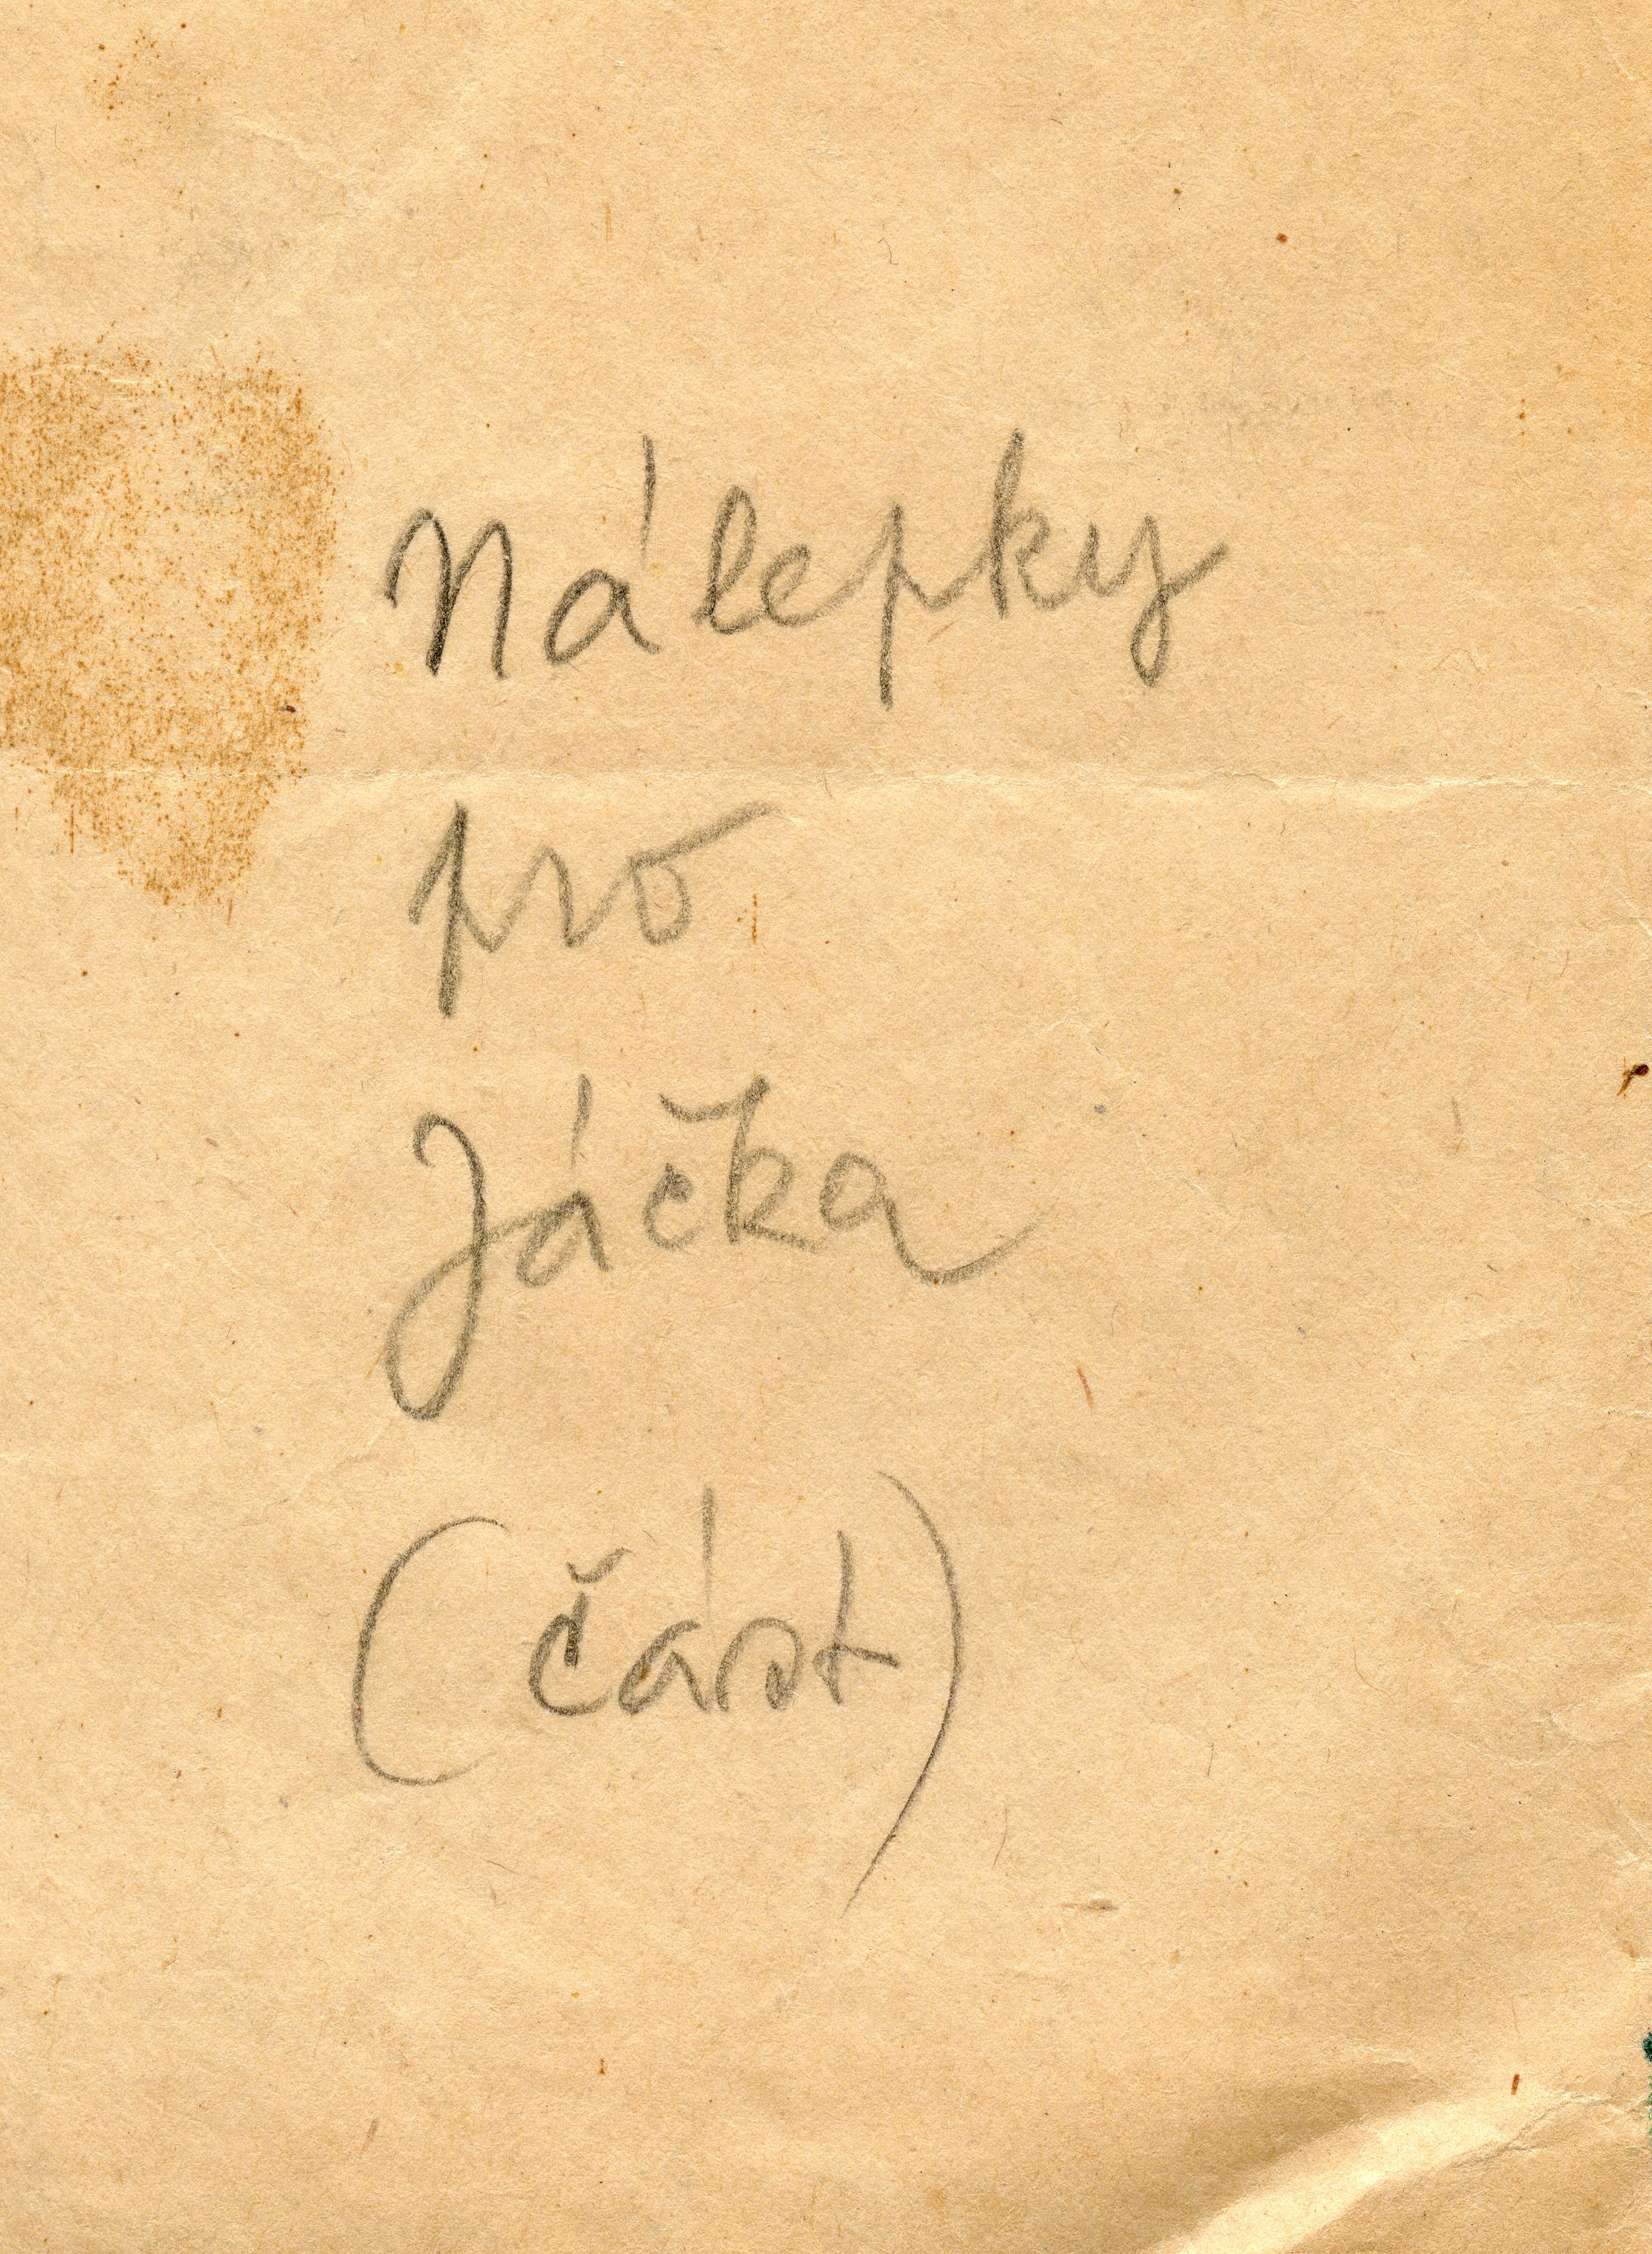 Nálepky
pro
Jáčka
(část)